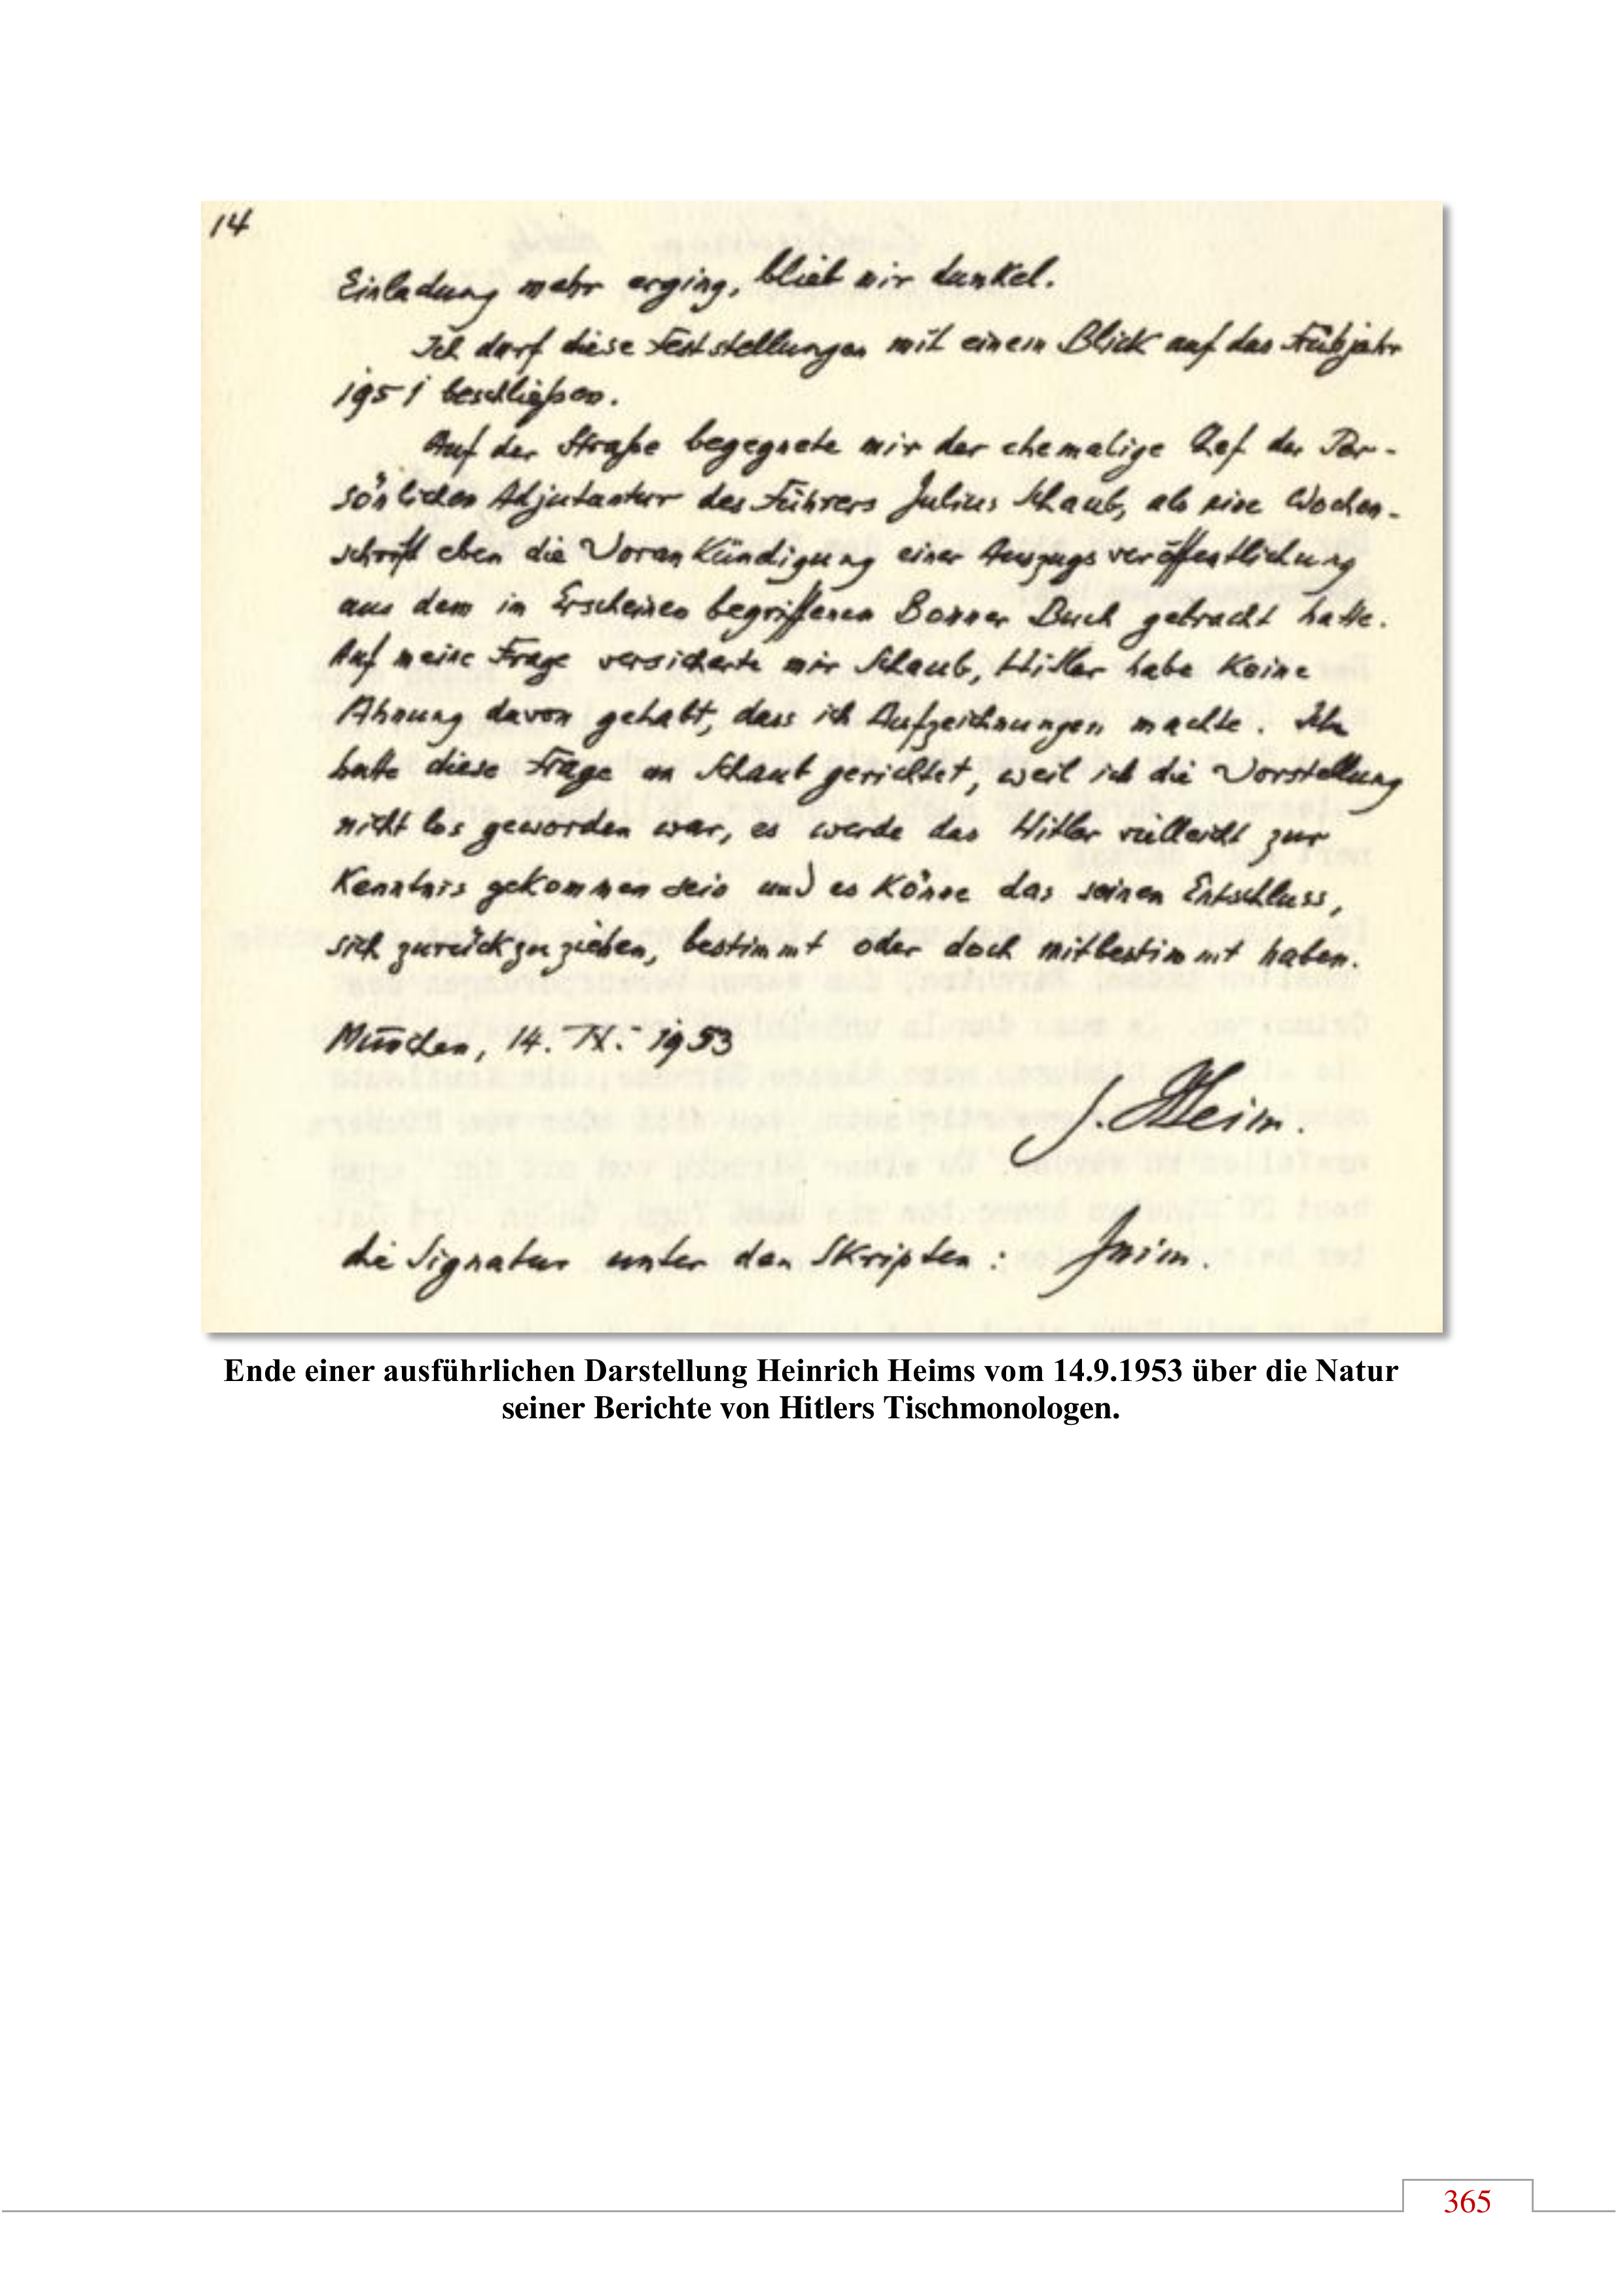 14
Einladung mehr erging, blieb mir dunkel.
Ich darf diese Feststellungen mit einem Blick auf das Frühjahr
1951 beschließen.
Auf der Straße begegnete mir der ehemalige Chef der Per-
sönlichen Adjutantur des Führers Julius Schaub, als eine Wochen-
schrift eben die Voran kündigung einer Auszugsveröffentlichung
aus dem im Erscheinen begriffenen Bonner Buch gebracht hatte.
Auf meine Frage versicherte mir Schaub, Hitler habe keine
Ahnung davon gehabt, dass ich Aufzeichnungen machte. Ich
hatte diese Frage an Schaub gerichtet, weil ich die Vorstellung
nicht los geworden war, es werde das Hitler vielleicht zur
Kenntnis gekommen sein und es könne das seinen Entschluss,
sich zurückzuziehen, bestimmt oder doch mitbestimmt haben.
München, 14. IX. 1953
H. Heim.
die Signatur unter den Skripten: Heim.
Ende einer ausführlichen Darstellung Heinrich Heims vom 14.9.1953 über die Natur
seiner Berichte von Hitlers Tischmonologen.
365